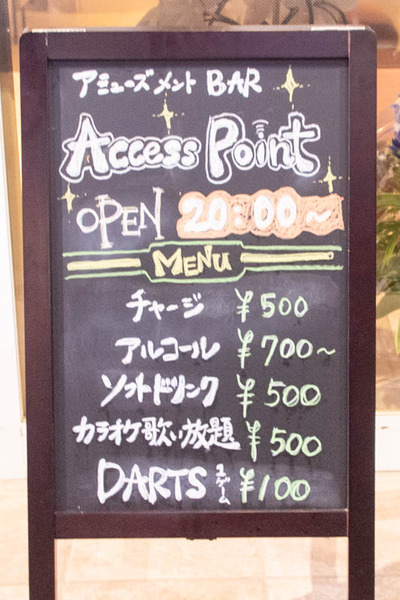 アミューズメント BAR
Access Point
OPEN 20:00～
MENU
チャージ ¥500
アルコール ¥700～
ソフトドリンク ¥500
カラオケ歌い放題 ¥500
DARTS 1ゲーム ¥100